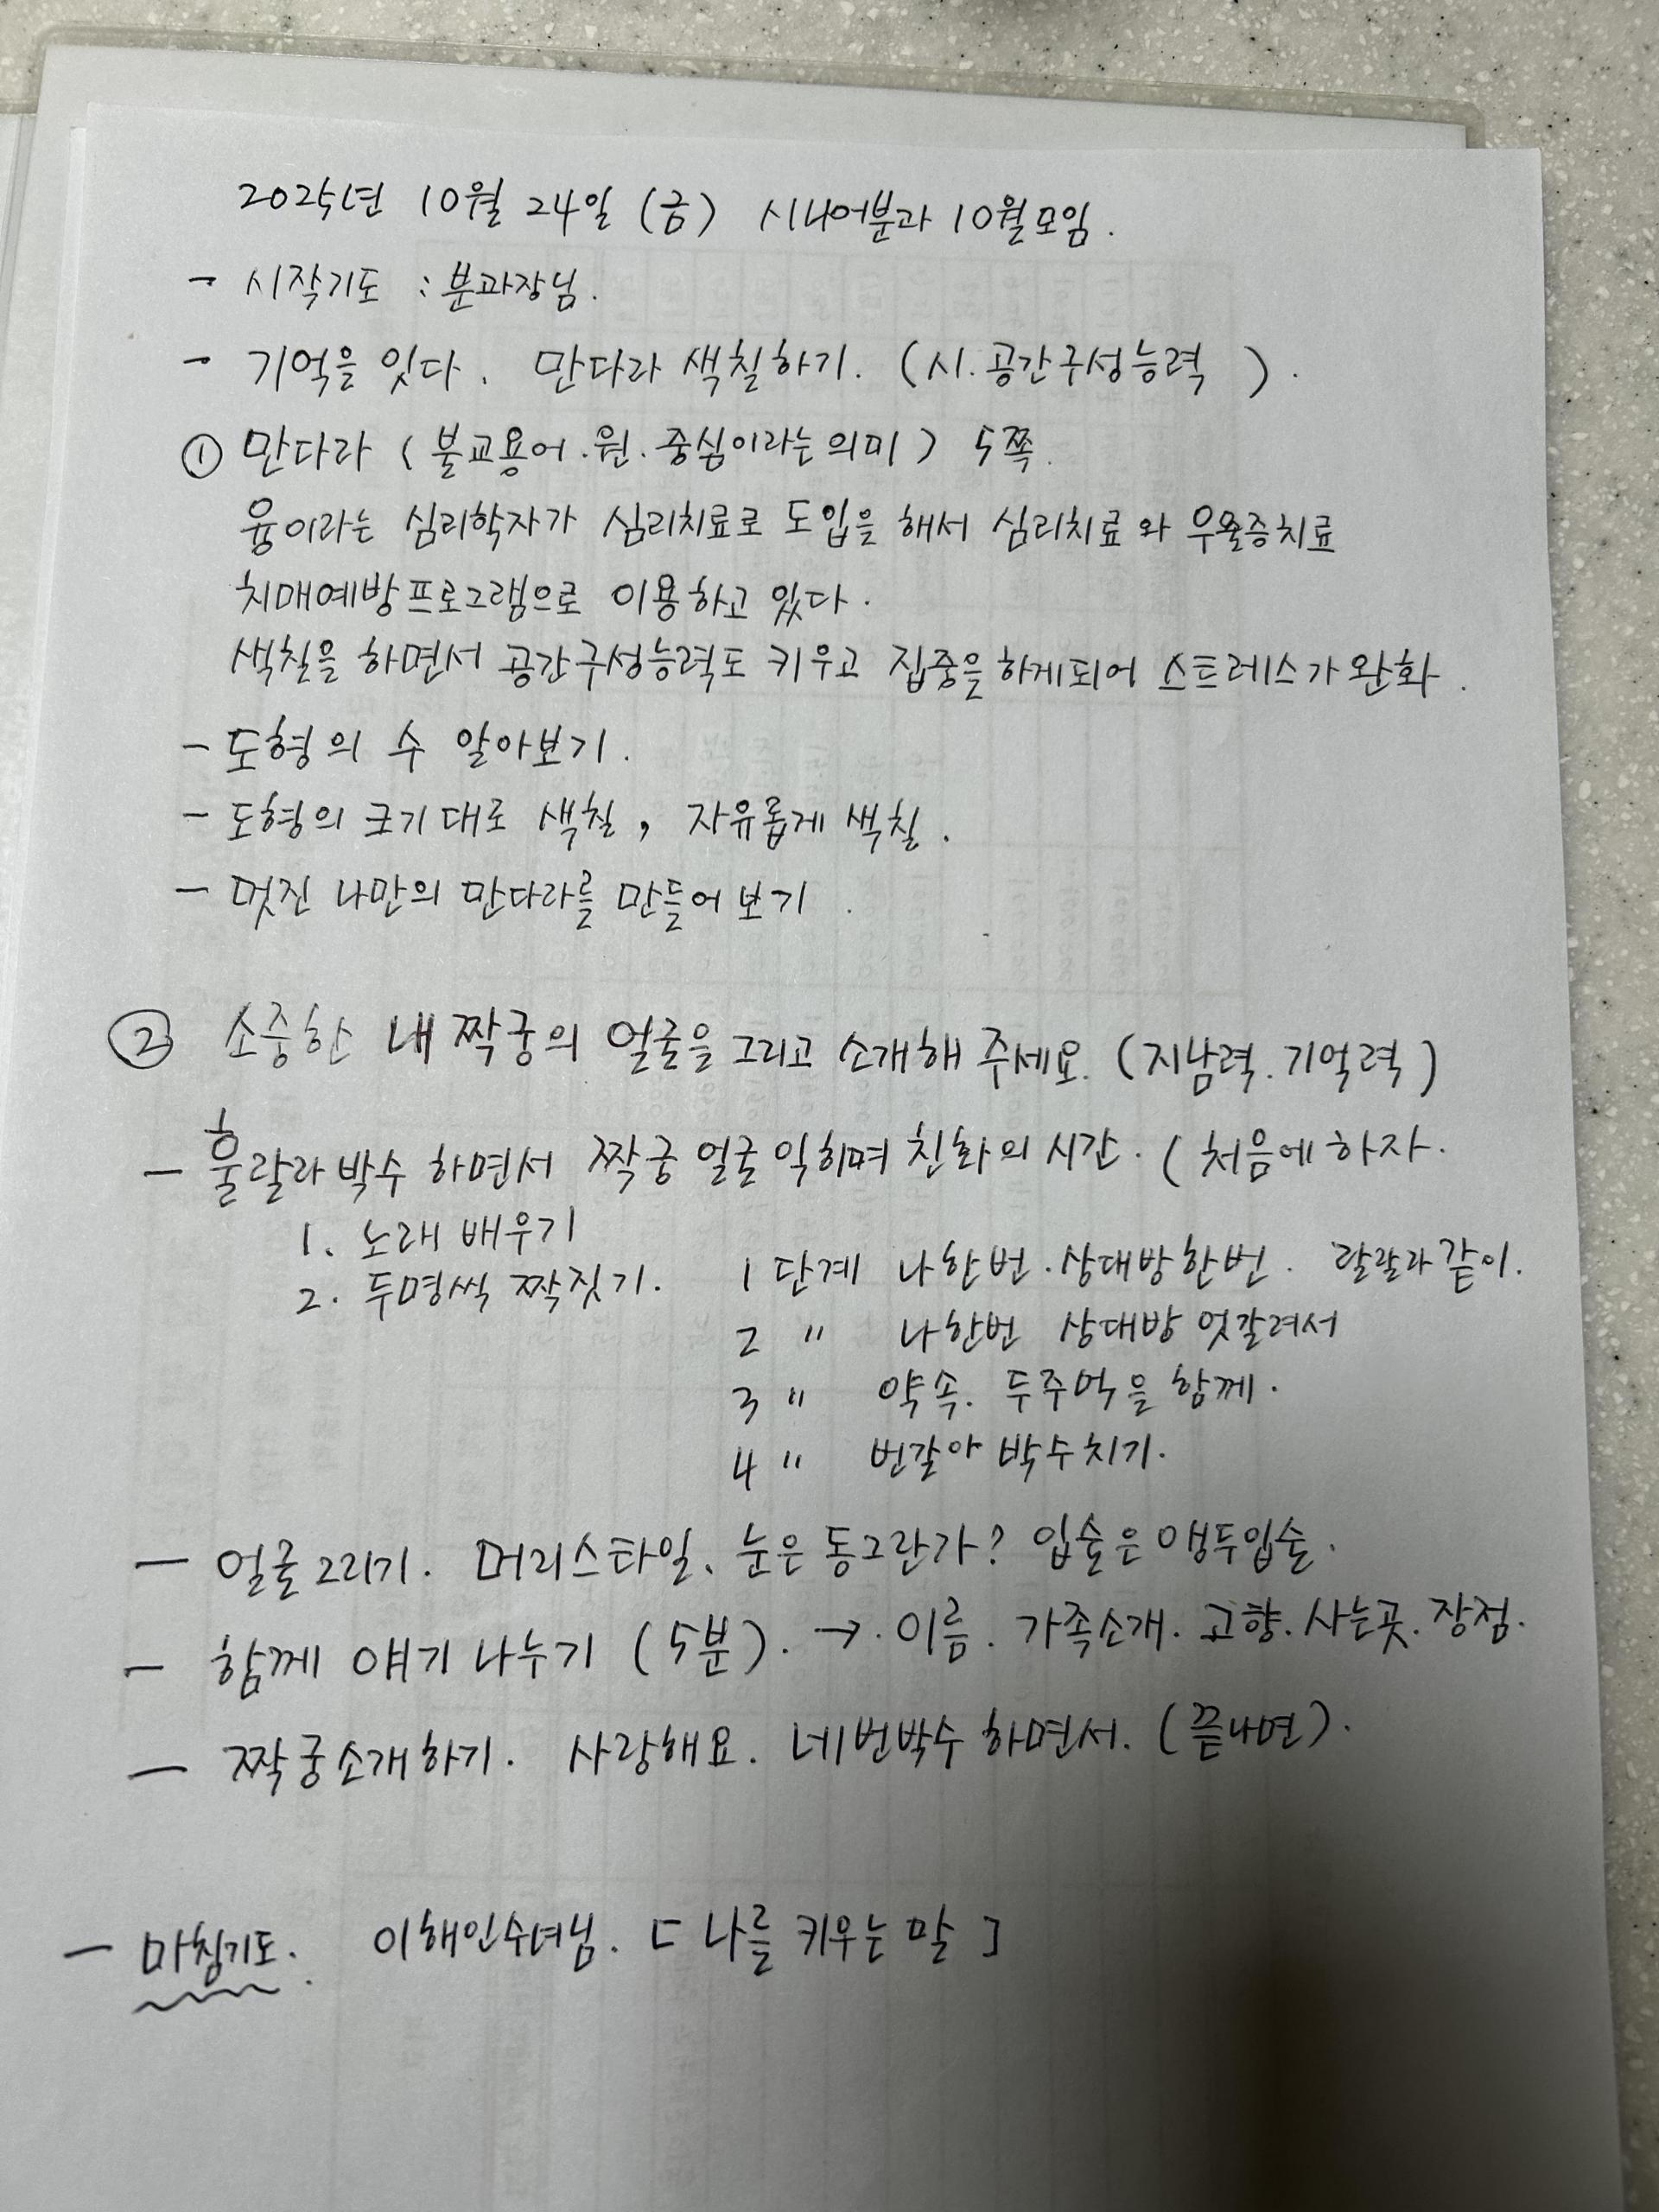 2025년 10월 24일 (금) 시니어분과 10월모임.
- 시작기도 : 분과장님.
- 기억을 잇다. 만다라 색칠하기. (시.공간구성능력 ).
① 만다라 (불교용어.원.중심이라는의미) 5쪽.
융이라는 심리학자가 심리치료로 도입을 해서 심리치료와 우울증치료
치매예방프로그램으로 이용하고 있다.
색칠을 하면서 공간구성능력도 키우고 집중을하게되어 스트레스가완화.
- 도형의 수 알아보기.
- 도형의 크기대로 색칠, 자유롭게 색칠.
- 멋진 나만의 만다라를 만들어보기.
② 소중한 내짝궁의 얼굴을 그리고 소개해 주세요. (지남력.기억력)
- 훌랄라박수 하면서 짝궁 얼굴익히며 친화의시간. (처음에하자.
1. 노래 배우기
2. 두명씩 짝짓기. 1단계 나한번.상대방한번. 랄랄라같이.
2 〃 나한번 상대방 엇갈려서
3 〃 약속. 두주먹을 함께.
4 〃 번갈아 박수치기.
- 얼굴그리기. 머리스타일. 눈은동그란가? 입술은앵두입술.
- 함께 얘기나누기 (5분). → 이름. 가족소개. 고향.사는곳.장점.
- 짝궁소개하기. 사랑해요. 네번박수하면서. (끝나면).
- 마침기도. 이해인수녀님. [나를 키우는 말]